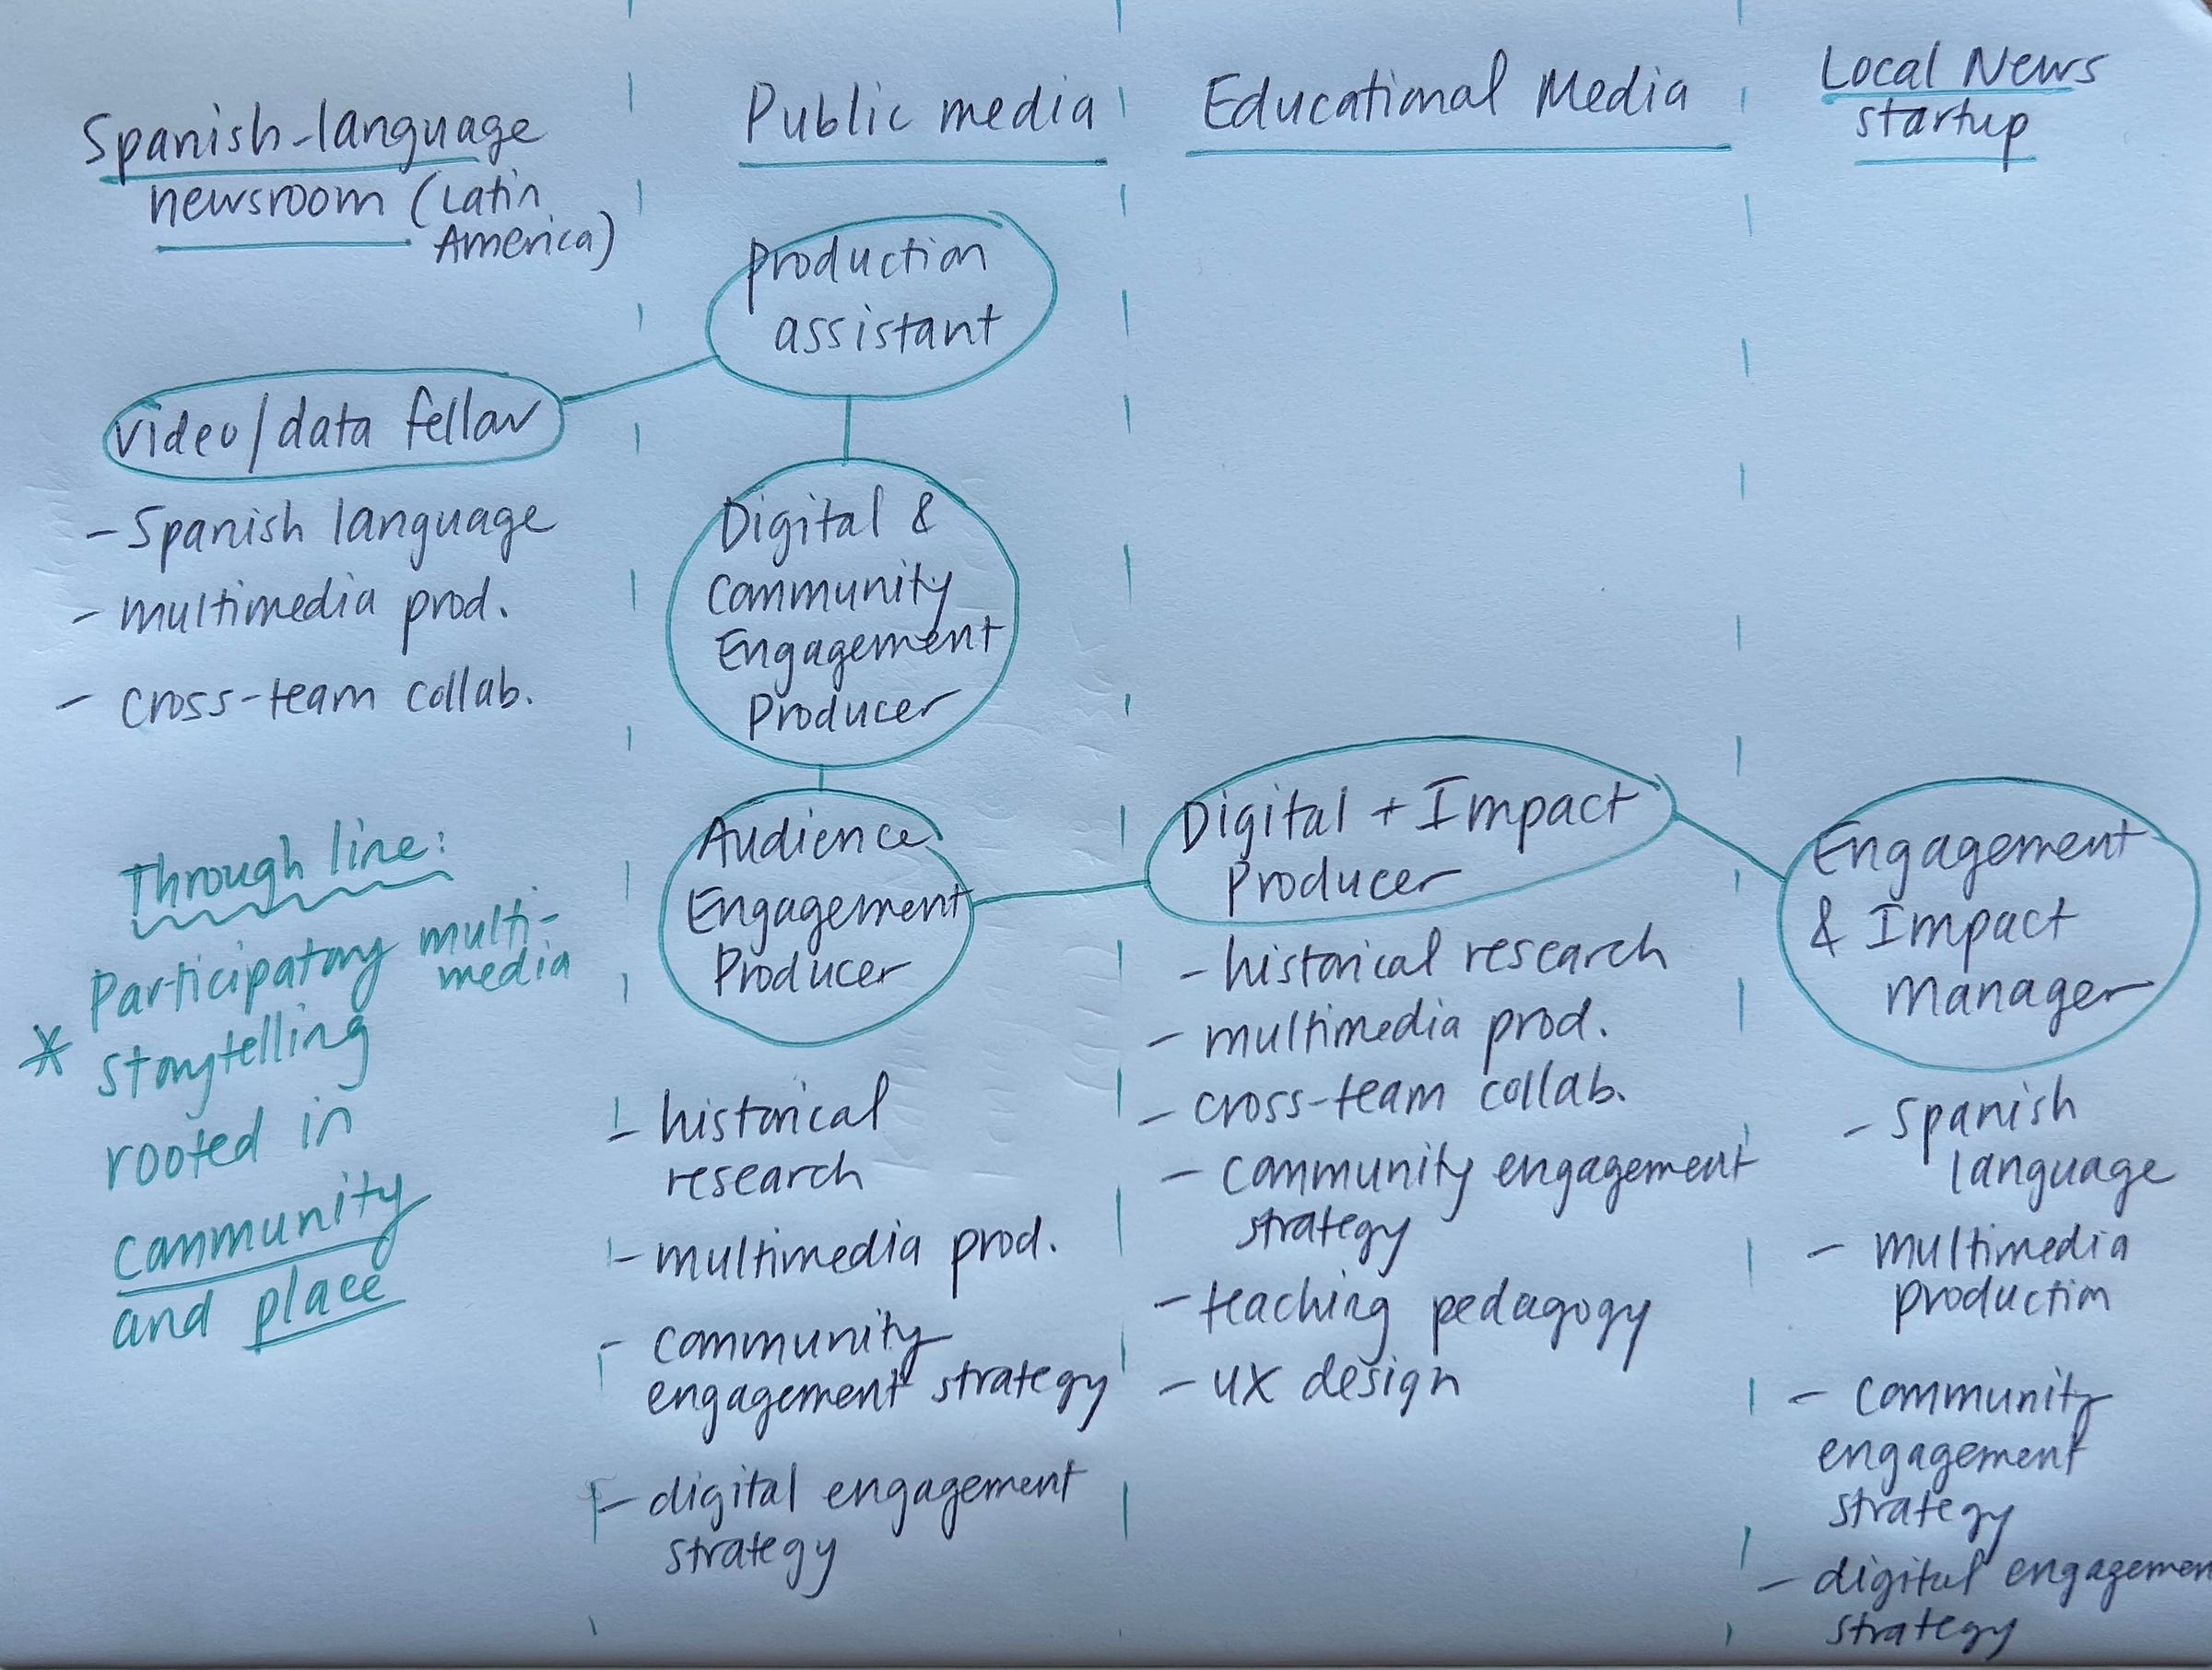 Spanish-language
newsroom (Latin
America)
video/data fellow
- Spanish language
- multimedia prod.
- cross-team collab.
Through line:
Participatory multi-
media
* storytelling
rooted in
community
and place
Public media
production
assistant
Digital &
Community
Engagement
Producer
Audience
Engagement
Producer
- historical
research
- multimedia prod.
- community
engagement strategy
- digital engagement
strategy
Educational Media
Digital + Impact
Producer
- historical research
- multimedia prod.
- cross-team collab.
- community engagement
strategy
- teaching pedagogy
- UX design
Local News
startup
Engagement
& Impact
Manager
- Spanish
language
- multimedia
production
- community
engagement
strategy
- digital engagemen
strategy